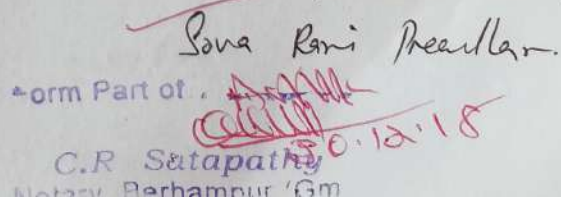 Sova Rani
orm Part of .
30.12.18
C.R Satapathy
Notary, Berhampur 'Gm